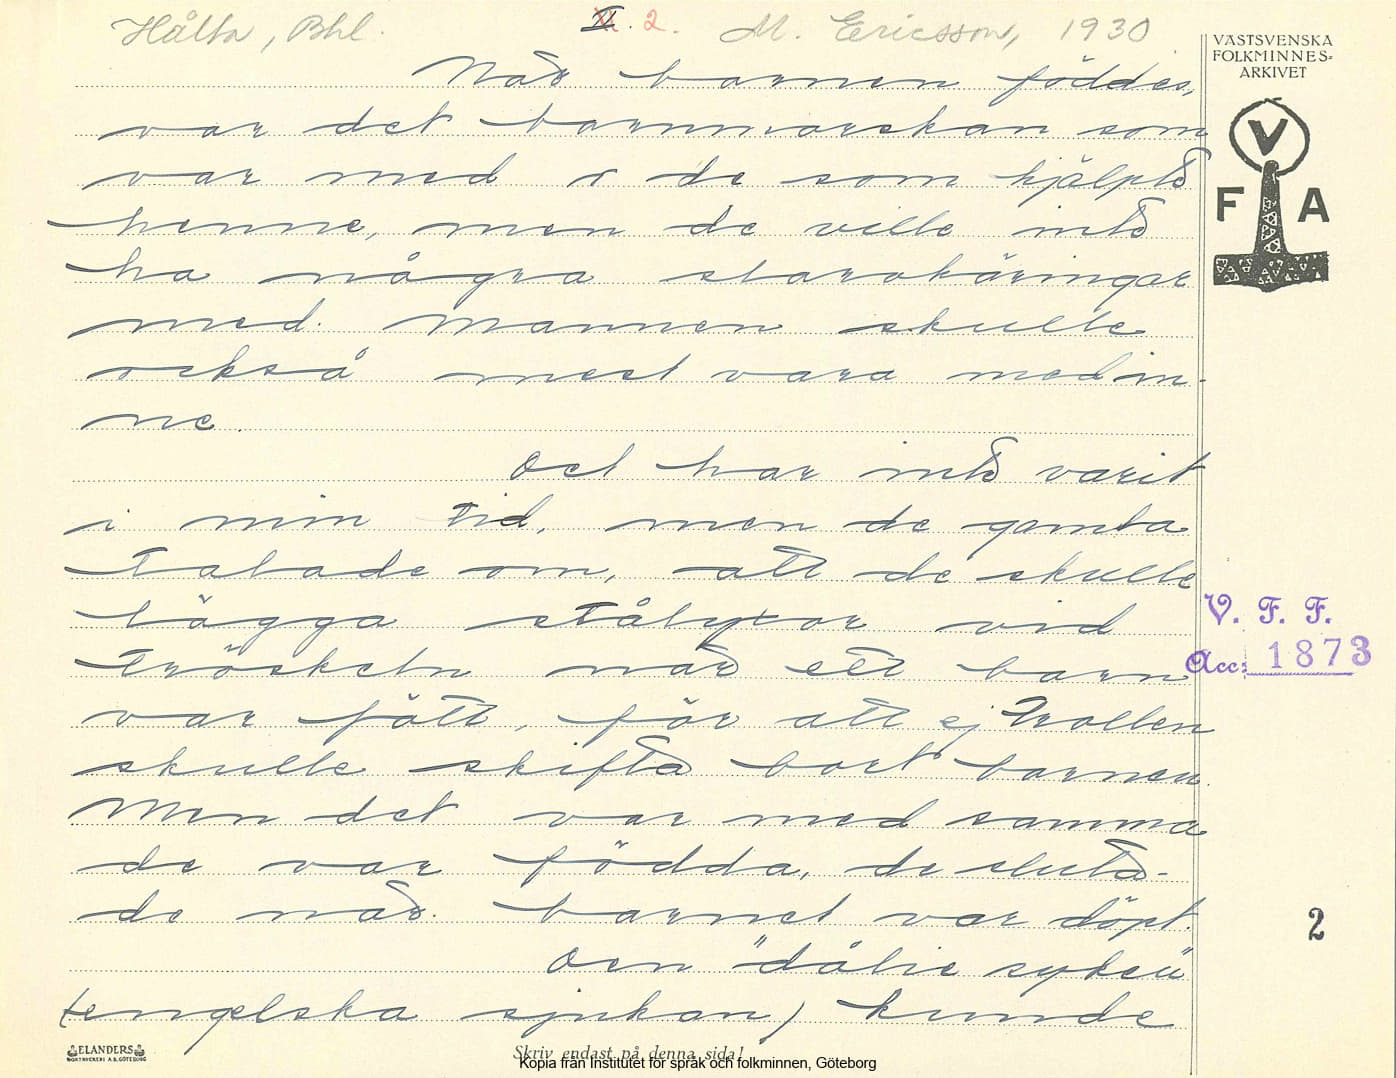 Hålta, Bhl. II. 2. M. Ericsson, 1930
VÄSTSVENSKA
FOLKMINNES=
ARKIVET
V
F A
När barnen föddes,
var det barnmorskan som
var med o de som hjälpte
henne, men de ville inte
ha några storakäringar
med. Mannen skulle
också mest vara med in-
ne.
Det har inte varit
i min tid, men de gamla
talade om, att de skulle
lägga stålyxor vid
tröskeln när ett barn
var fött, för att ej trollen
skulle skifta bort barnen.
Men det var med samma
de var födda, de sluta-
de när barnet var döpt.
Den "dålie syken"
(engelska sjukan) kunde
V. F. F.
Acc: 1873
2
ELANDERS
BOKTRYCKERI A.B. GÖTEBORG
Skriv endast på denna sida!
Kopia från Institutet för språk och folkminnen, Göteborg